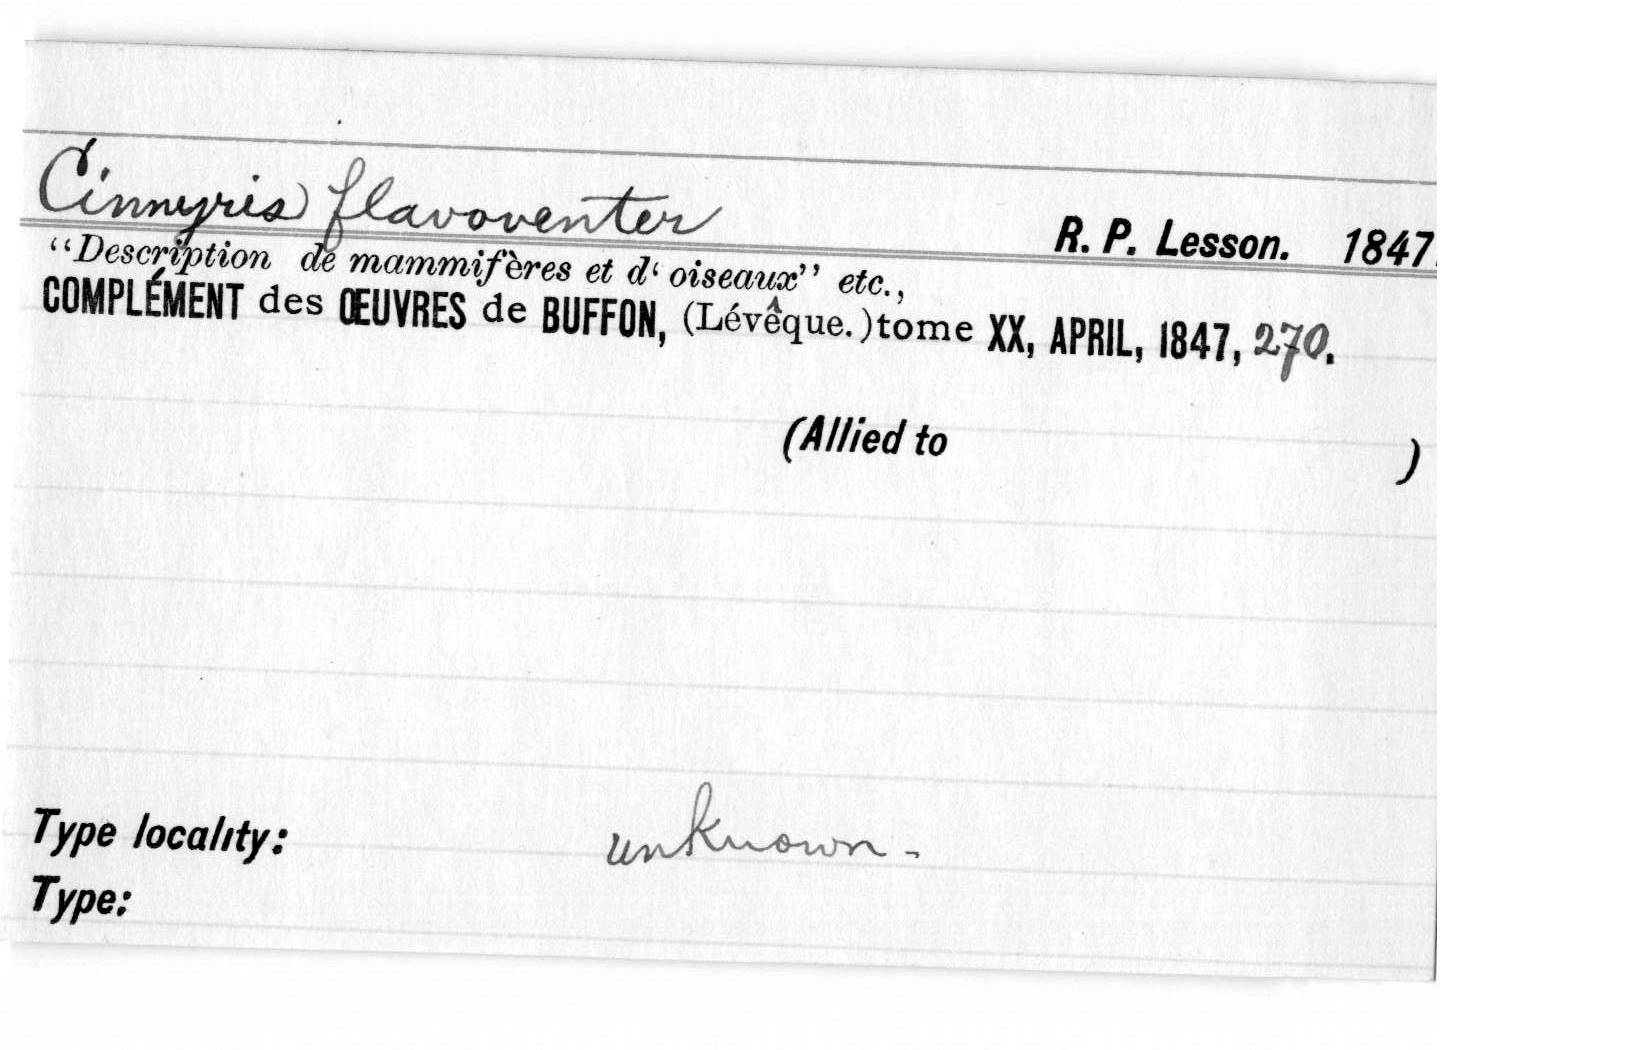 Cinnyris flavoventer R. P. Lesson. 1847.
“Description de mammifères et d‘ oiseaux” etc.,
COMPLÉMENT des ŒUVRES de BUFFON, (Lévêque.)tome XX, APRIL, 1847, 270.
(Allied to )
Type locality: unknown -
Type: